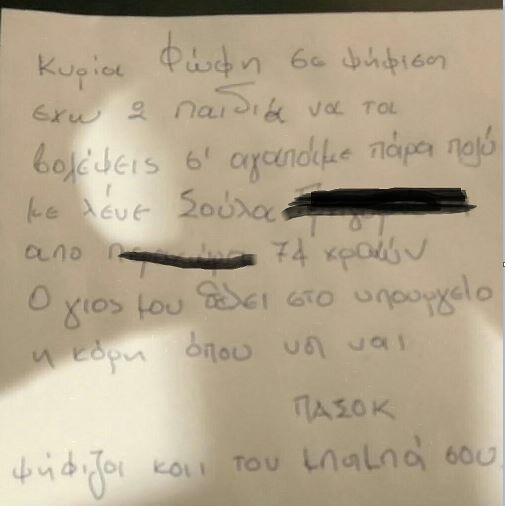 Κυρία Φώφη σε ψήφιση
έχω 2 παιδιά να τα
βολέψεις σ' αγαπάμε πάρα πολύ
με λένε Σούλα
απο 74 χρονών
Ο γιος μου θέλει στο υπουργείο
η κόρη όπου νά ναι
ΠΑΣΟΚ
ψήφιζα και του μπαμπά σου